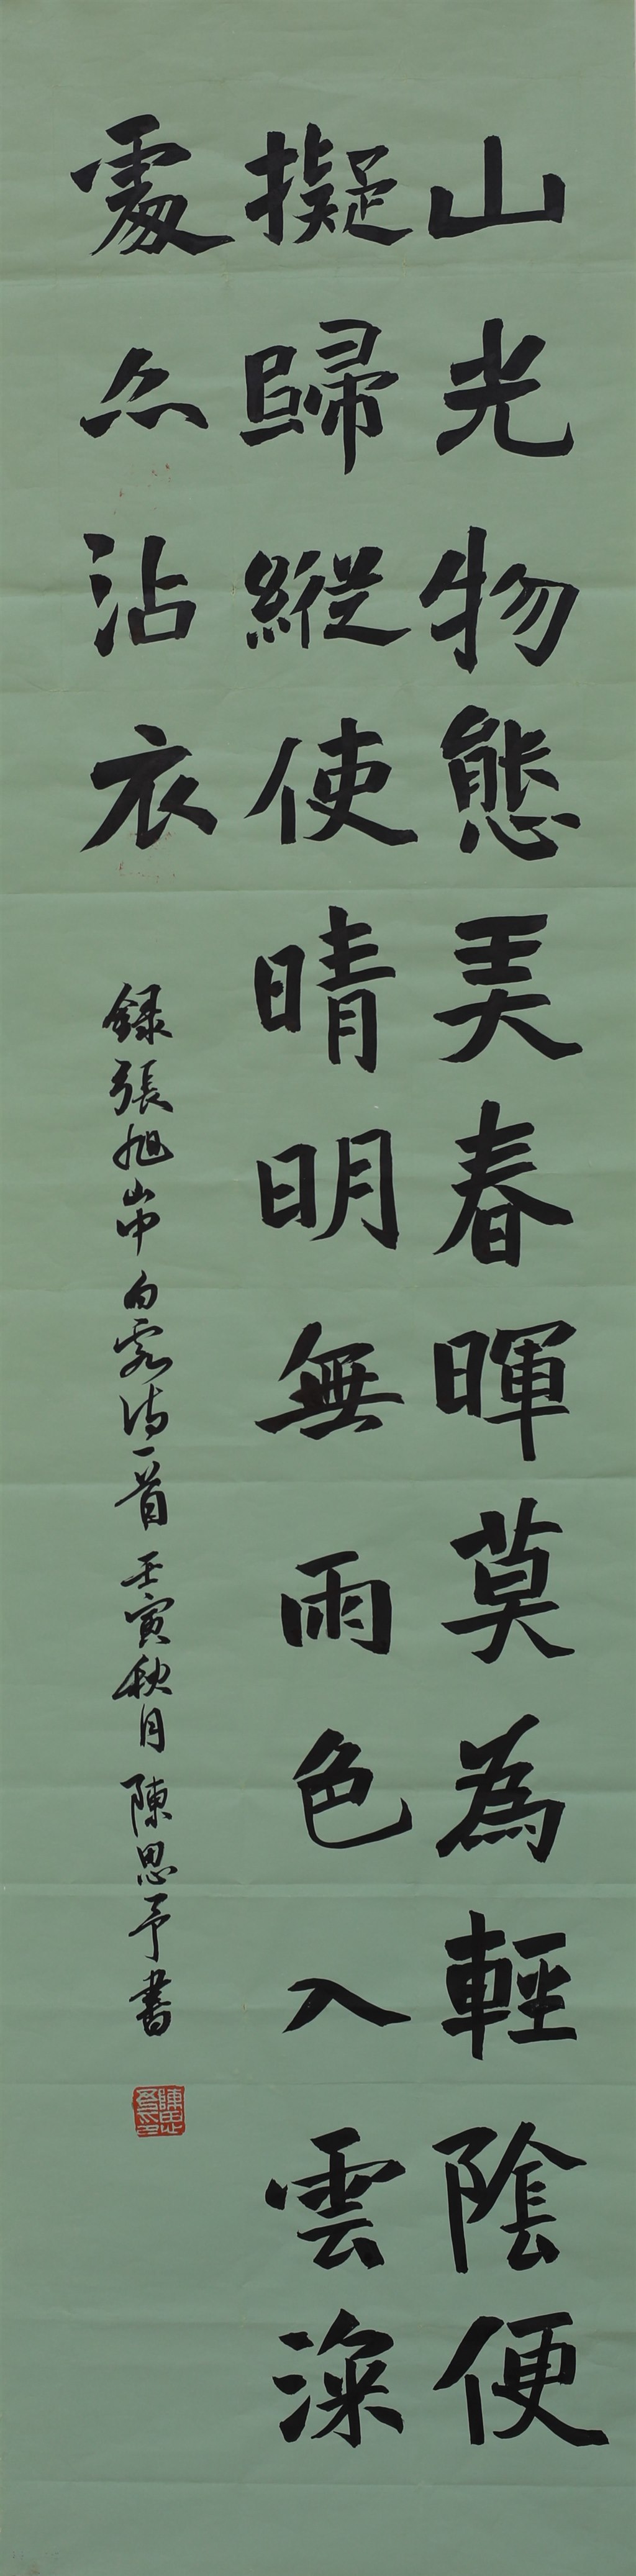 山光物態弄春暉莫為輕陰便
擬歸縱使晴明無雨色入雲深
處亦沾衣
錄張旭山中留客詩一首 壬寅秋月 陳思予書